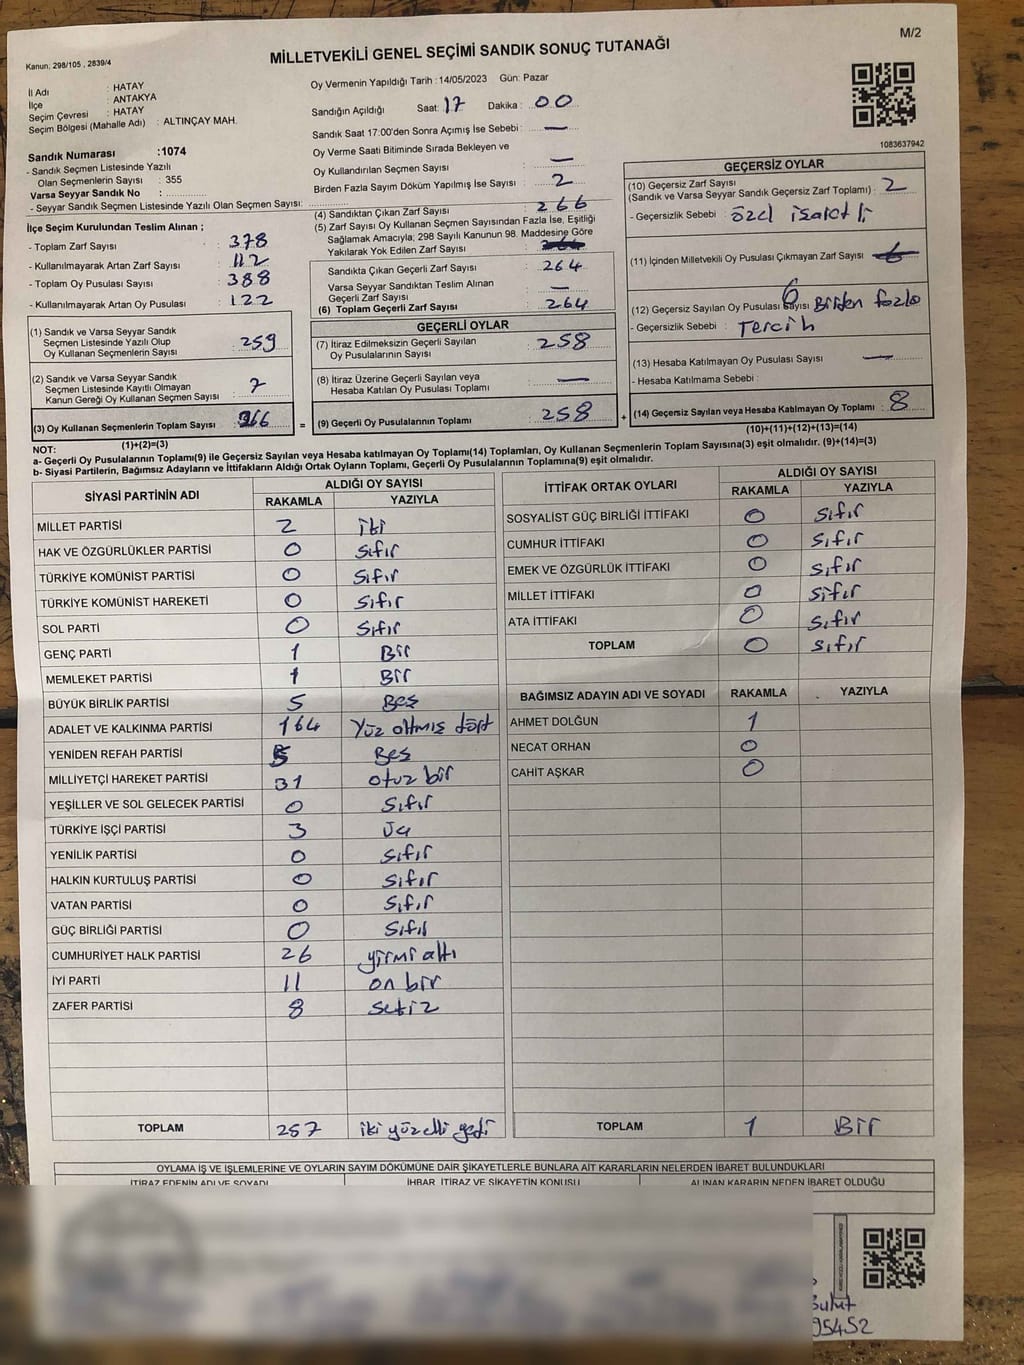 M/2
MİLLETVEKİLİ GENEL SEÇİMİ SANDIK SONUÇ TUTANAĞI
Kanun; 298/105 , 2839/4
İl Adı : HATAY
İlçe : ANTAKYA
Seçim Çevresi : HATAY
Seçim Bölgesi (Mahalle Adı) : ALTINÇAY MAH.
Sandık Numarası :1074
- Sandık Seçmen Listesinde Yazılı
Olan Seçmenlerin Sayısı : 355
Varsa Seyyar Sandık No :
- Seyyar Sandık Seçmen Listesinde Yazılı Olan Seçmen Sayısı:
İlçe Seçim Kurulundan Teslim Alınan ;
- Toplam Zarf Sayısı : 378
- Kullanılmayarak Artan Zarf Sayısı : 112
- Toplam Oy Pusulası Sayısı : 388
- Kullanılmayarak Artan Oy Pusulası : 122
(1) Sandık ve Varsa Seyyar Sandık
Seçmen Listesinde Yazılı Olup
Oy Kullanan Seçmenlerin Sayısı : 259
(2) Sandık ve Varsa Seyyar Sandık
Seçmen Listesinde Kayıtlı Olmayan
Kanun Gereği Oy Kullanan Seçmen Sayısı : 7
(3) Oy Kullanan Seçmenlerin Toplam Sayısı : 266
(1)+(2)=(3)
Oy Vermenin Yapıldığı Tarih : 14/05/2023 Gün: Pazar
Sandığın Açıldığı Saat: 17 Dakika : 00
Sandık Saat 17:00'den Sonra Açımış İse Sebebi : —
Oy Verme Saati Bitiminde Sırada Bekleyen ve
Oy Kullandırılan Seçmen Sayısı : —
Birden Fazla Sayım Döküm Yapılmış İse Sayısı : 2
(4) Sandıktan Çıkan Zarf Sayısı : 266
(5) Zarf Sayısı Oy Kullanan Seçmen Sayısından Fazla İse, Eşitliği
Sağlamak Amacıyla; 298 Sayılı Kanunun 98. Maddesine Göre
Yakılarak Yok Edilen Zarf Sayısı :
Sandıkta Çıkan Geçerli Zarf Sayısı : 264
Varsa Seyyar Sandıktan Teslim Alınan
Geçerli Zarf Sayısı : —
(6) Toplam Geçerli Zarf Sayısı : 264
GEÇERLİ OYLAR
(7) İtiraz Edilmeksizin Geçerli Sayılan
Oy Pusulalarının Sayısı : 258
(8) İtiraz Üzerine Geçerli Sayılan veya
Hesaba Katılan Oy Pusulası Toplamı : —
= (9) Geçerli Oy Pusulalarının Toplamı : 258 +
1083637942
GEÇERSİZ OYLAR
(10) Geçersiz Zarf Sayısı
(Sandık ve Varsa Seyyar Sandık Geçersiz Zarf Toplamı) : 2
- Geçersizlik Sebebi : özel işaretli
(11) İçinden Milletvekili Oy Pusulası Çıkmayan Zarf Sayısı :
(12) Geçersiz Sayılan Oy Pusulası Sayısı : 6 Birden fazla
- Geçersizlik Sebebi : Tercih
(13) Hesaba Katılmayan Oy Pusulası Sayısı : —
- Hesaba Katılmama Sebebi :
(14) Geçersiz Sayılan veya Hesaba Katılmayan Oy Toplamı : 8
(10)+(11)+(12)+(13)=(14)
NOT:
a- Geçerli Oy Pusulalarının Toplamı(9) ile Geçersiz Sayılan veya Hesaba katılmayan Oy Toplamı(14) Toplamları, Oy Kullanan Seçmenlerin Toplam Sayısına(3) eşit olmalıdır. (9)+(14)=(3)
b- Siyasi Partilerin, Bağımsız Adayların ve İttifakların Aldığı Ortak Oyların Toplamı, Geçerli Oy Pusulalarının Toplamına(9) eşit olmalıdır.
SİYASİ PARTİNİN ADI ALDIĞI OY SAYISI
RAKAMLA YAZIYLA
MİLLET PARTİSİ 2 iki
HAK VE ÖZGÜRLÜKLER PARTİSİ 0 sıfır
TÜRKİYE KOMÜNİST PARTİSİ 0 sıfır
TÜRKİYE KOMÜNİST HAREKETİ 0 sıfır
SOL PARTİ 0 sıfır
GENÇ PARTİ 1 Bir
MEMLEKET PARTİSİ 1 Bir
BÜYÜK BİRLİK PARTİSİ 5 Beş
ADALET VE KALKINMA PARTİSİ 164 Yüz altmış dört
YENİDEN REFAH PARTİSİ 5 Beş
MİLLİYETÇİ HAREKET PARTİSİ 31 otuz bir
YEŞİLLER VE SOL GELECEK PARTİSİ 0 sıfır
TÜRKİYE İŞÇİ PARTİSİ 3 Üç
YENİLİK PARTİSİ 0 sıfır
HALKIN KURTULUŞ PARTİSİ 0 sıfır
VATAN PARTİSİ 0 sıfır
GÜÇ BİRLİĞİ PARTİSİ 0 sıfır
CUMHURİYET HALK PARTİSİ 26 yirmi altı
İYİ PARTİ 11 on bir
ZAFER PARTİSİ 8 sekiz
TOPLAM 257 iki yüz elli yedi
İTTİFAK ORTAK OYLARI ALDIĞI OY SAYISI
RAKAMLA YAZIYLA
SOSYALİST GÜÇ BİRLİĞİ İTTİFAKI 0 sıfır
CUMHUR İTTİFAKI 0 sıfır
EMEK VE ÖZGÜRLÜK İTTİFAKI 0 sıfır
MİLLET İTTİFAKI 0 sıfır
ATA İTTİFAKI 0 sıfır
TOPLAM 0 sıfır
BAĞIMSIZ ADAYIN ADI VE SOYADI RAKAMLA YAZIYLA
AHMET DOLĞUN 1
NECAT ORHAN 0
CAHİT AŞKAR 0
TOPLAM 1 Bir
OYLAMA İŞ VE İŞLEMLERİNE VE OYLARIN SAYIM DÖKÜMÜNE DAİR ŞİKAYETLERLE BUNLARA AİT KARARLARIN NELERDEN İBARET BULUNDUKLARI
İTİRAZ EDENİN ADI VE SOYADI İHBAR, İTİRAZ VE ŞİKAYETİN KONUSU ALINAN KARARIN NEDEN İBARET OLDUĞU
Bulut
95452